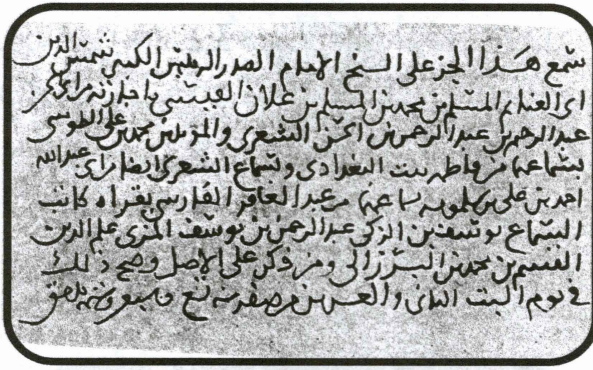 سمع هذا الجزء على الشيخ الامام الصدر الرئيس الكبير شمس الدين
ابي الغنائم المسلم بن محمد بن المسلم بن علان القيسي باجازته من ابي
عبد الرحيم بن عبد الرحمن بن الحسن الشعري والمويد بن محمد بن علي الطوسي
بسماعهما من فاطمه بنت البغدادي وبسماع الشعري ايضا من ابي عبد الله
احمد بن علي بن سماعهما من عبد الغافر الفارسي بقراه كاتب
السماع يوسف بن الزكي عبد الرحمن بن يوسف المزي علم الدين
القسم بن محمد بن البرزالي ومن ذكر على الاصل وصح ذلك
في يوم السبت الثاني والعشرين من صفر سنه تسع وسبعين وستمائة بدمشق